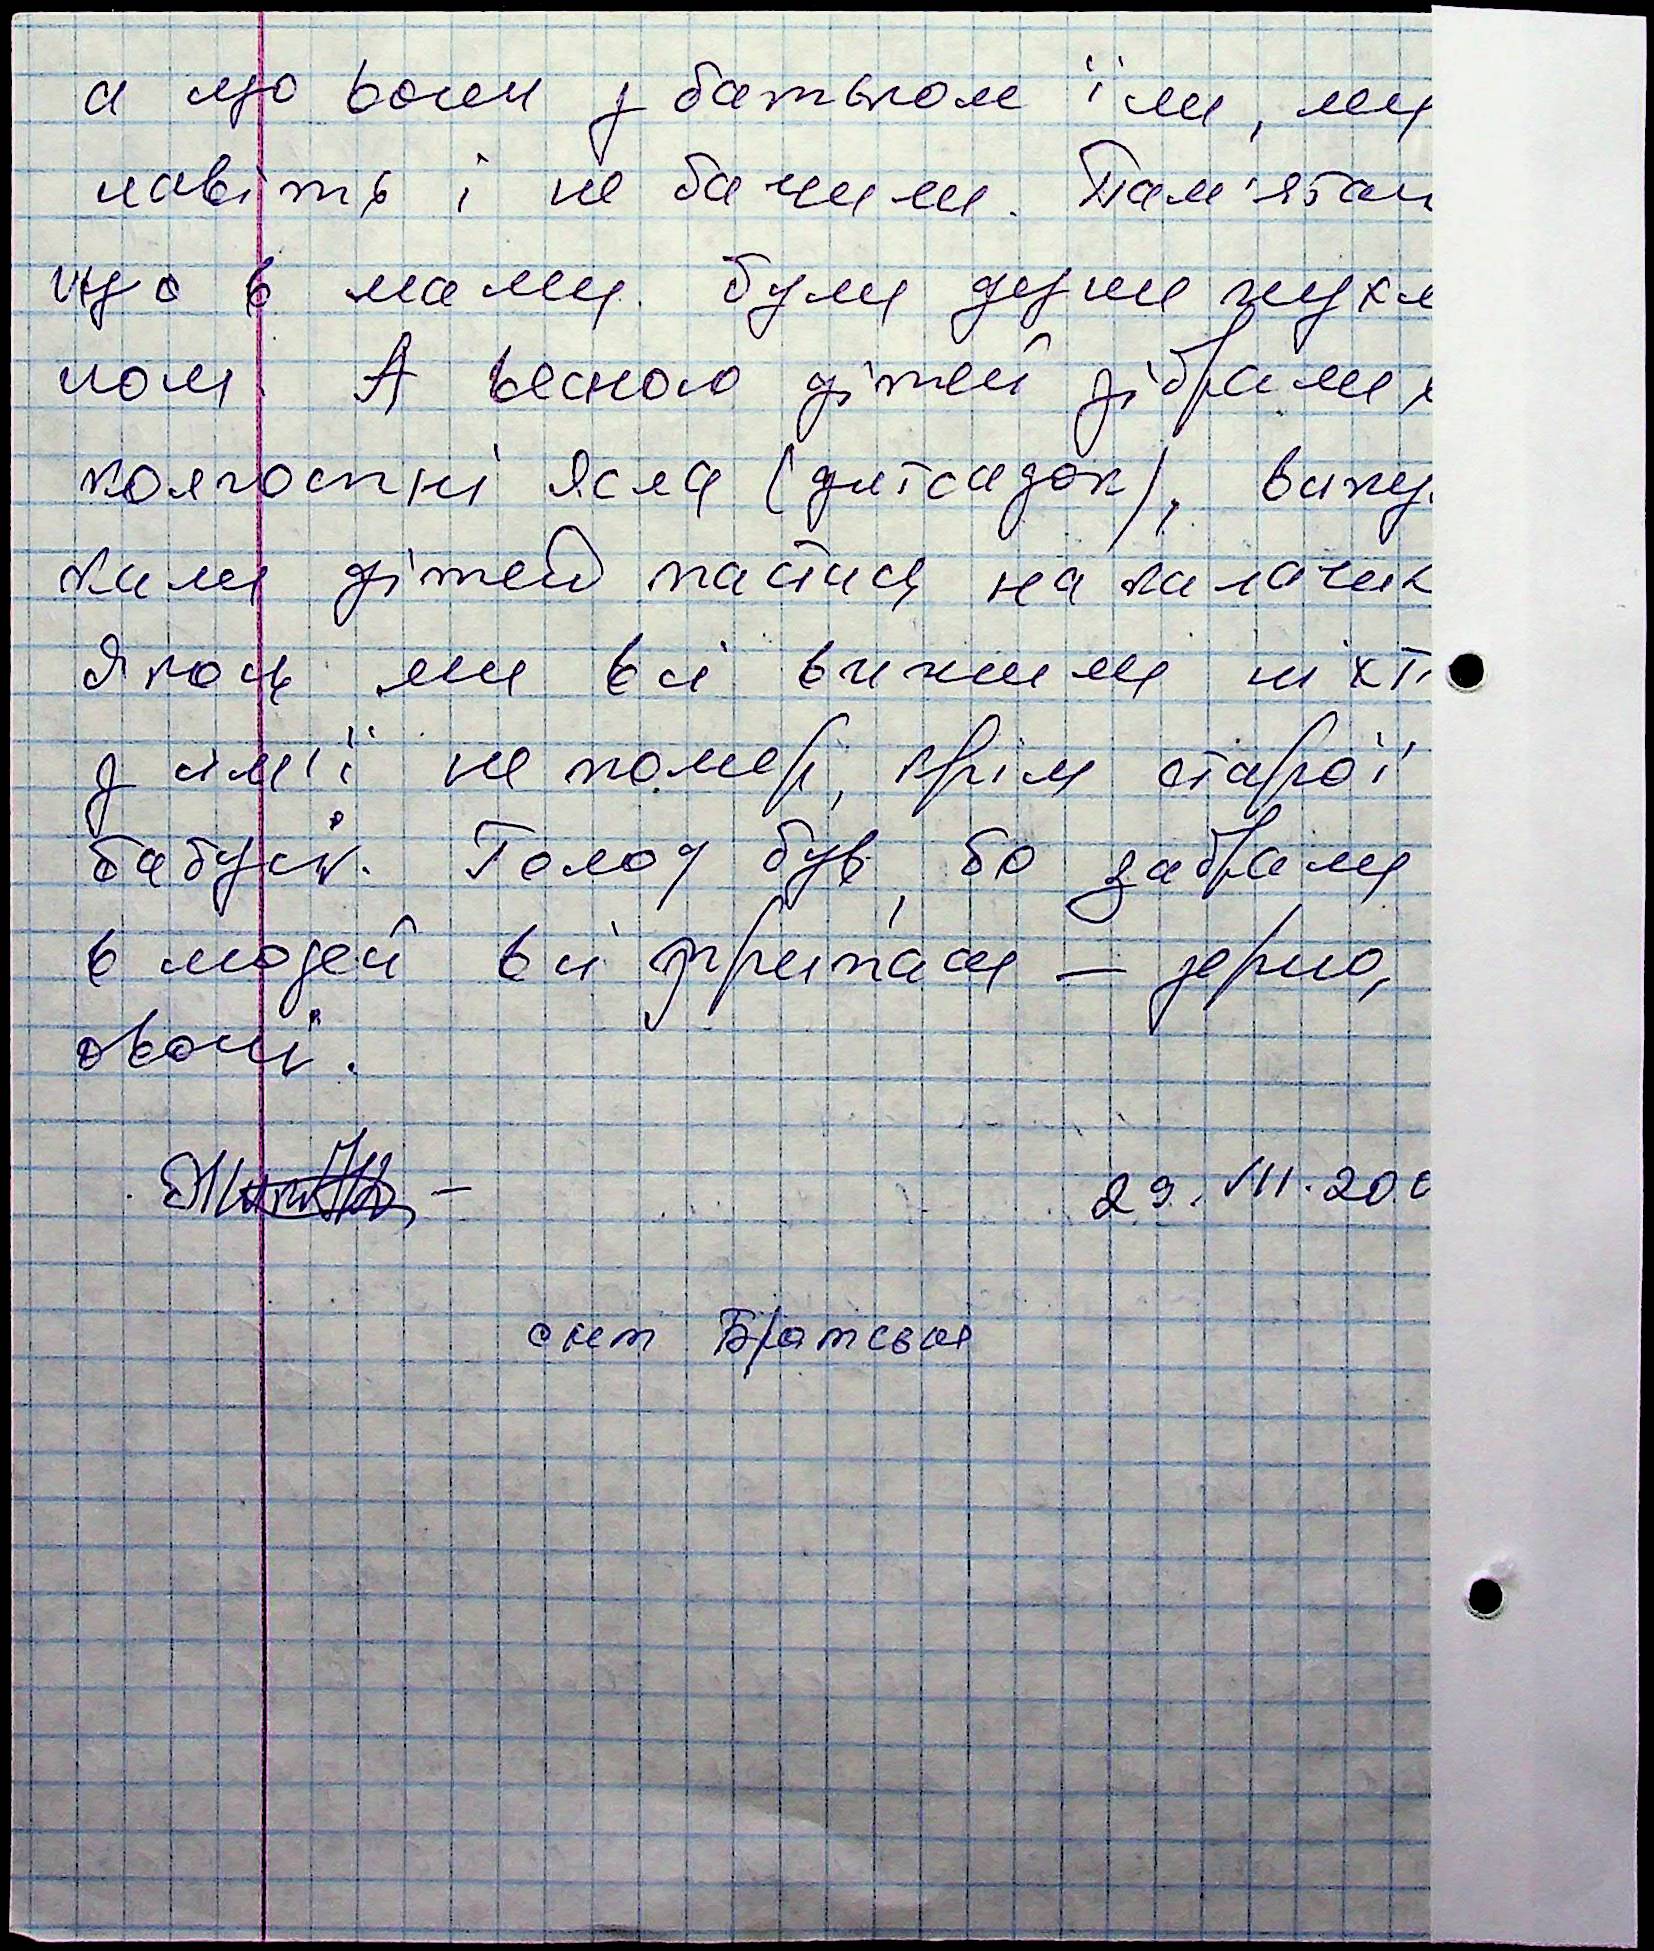 а що вони з батьком їли, ми
навіть і не бачили. Пам'ятаю
що в мами були дуже пухлі
ноги. А весною дітей зібрали в
колгоспні ясла (дитсадок), випус
кали дітей пастись на калачик
Якось ми всі вижили ніхто
з сім'ї не помер, крім старої
бабусі. Голод був, бо забрали
в людей всі припаси — зерно,
овочі.
29. VIII. 200
смт Братське